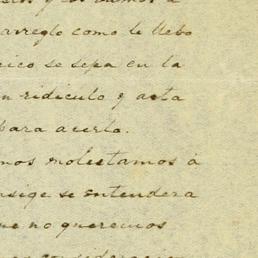 y los damos á
arreglo como le llebo
se sepa en la
ridiculo y asta
para acerlo.
mos molestamos á
se entendera
no queremos